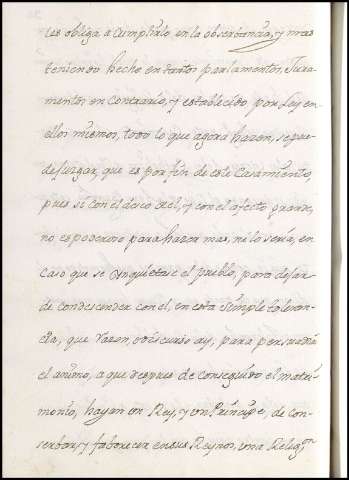 les obliga a cumplirlo en la obserbancia, y mas
teniendo hecho en tantos parlamentos, Jura-
mentos en contrario, y establecido por Ley en
ellos mismos, todo lo que agora hazen, se pue-
de juzgar, que es por fin de este Casamiento,
pues si con el deseo del, y con el afecto grande,
no es poderoso para hazer mas, ni lo seria, en
caso que se ynquietase el pueblo, para dejar
de condescender con el, en esta simple toleran-
cia, que razon, o discurso ay, para persuadir
el animo, a que despues de conseguido el matri-
monio, hayan un Rey, y un Principe, de con-
serbar, y faborecer en sus Reynos, una Religon